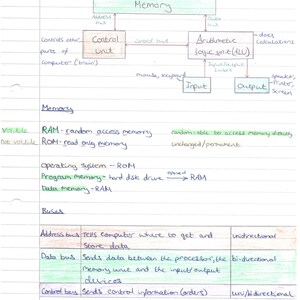 Memory
Address bus
Data bus
controls other parts of computer (brain)
Control unit
control bus
Arithmetic logic unit (ALU)
- does calculations
Input/output buses
mouse, keyboard
Input
Output
speaker, printer, screen
Memory
volatile RAM - random access memory random-able to access memory directly
not volatile ROM - read only memory unchanged/permanent
Operating system - ROM
Program memory - hard disk drive → RAM
Data memory - RAM
Buses
Address bus Tells computer where to get and store data unidirectional
Data bus Sends data between the processor, the memory unit and the input/output devices bi-directional
Control bus Sends control information (orders) uni/bidirectional